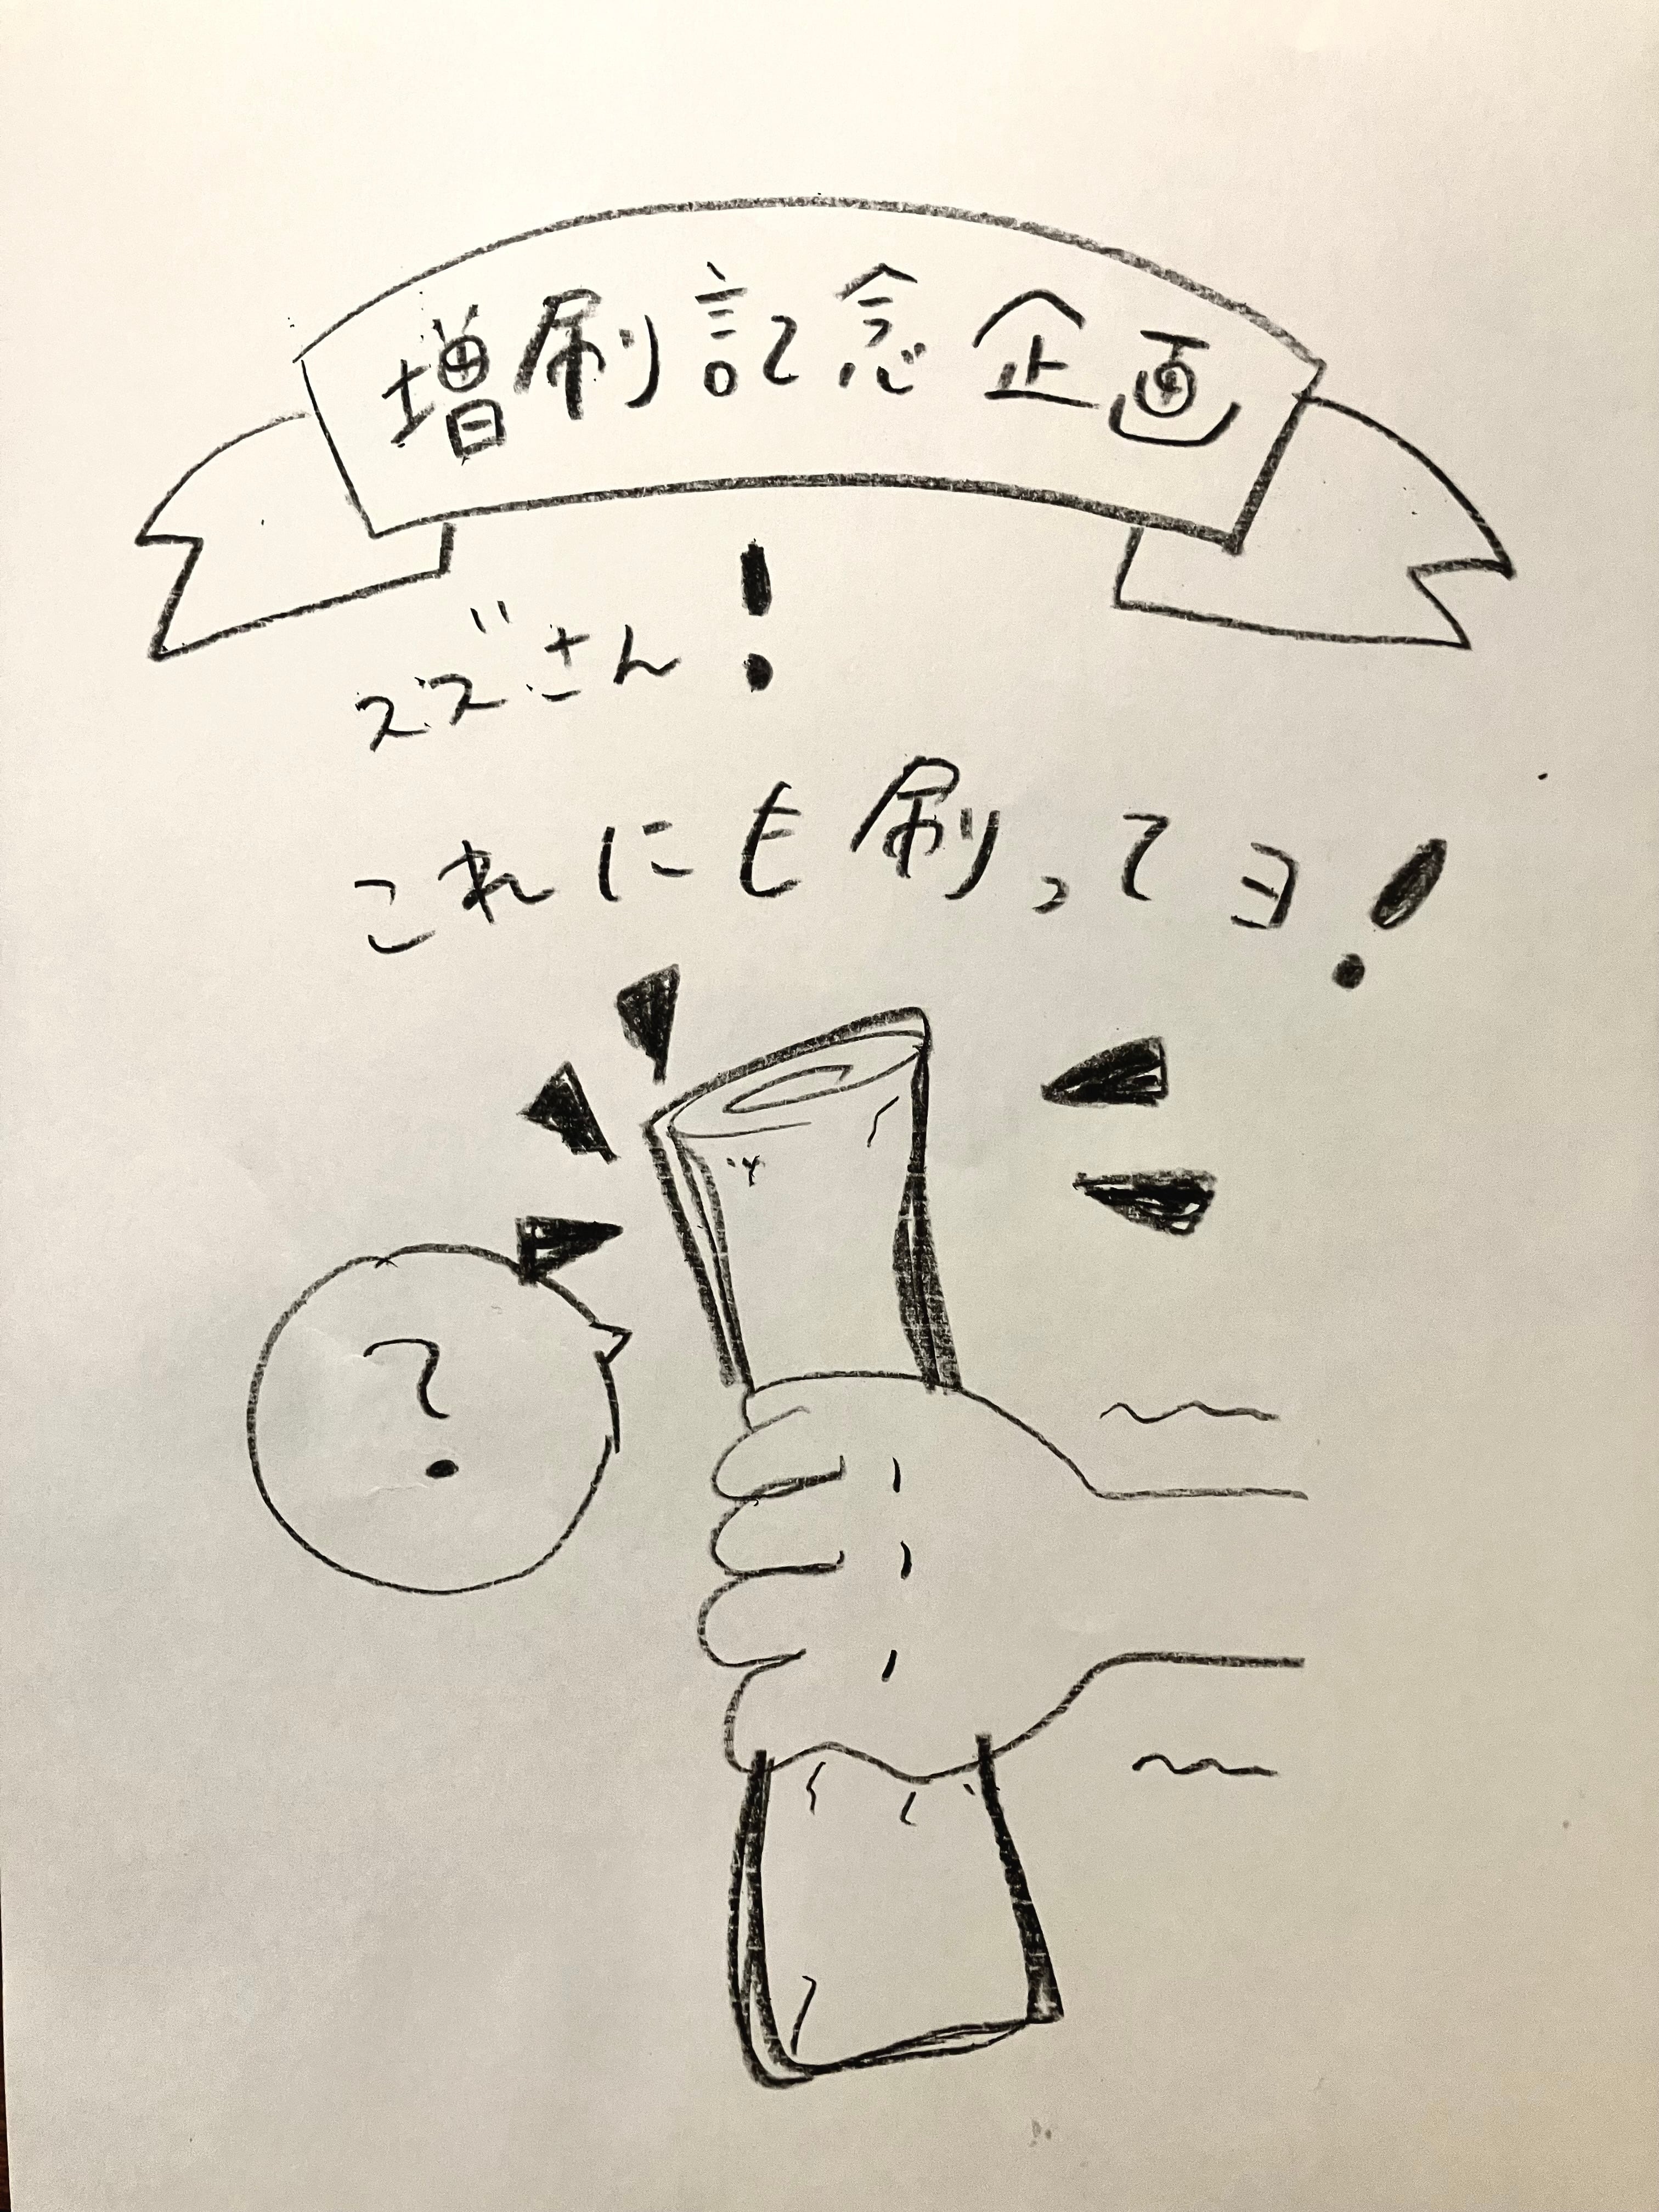 増刷記念企画
ズズさん!
これにも刷ってヨ!
?